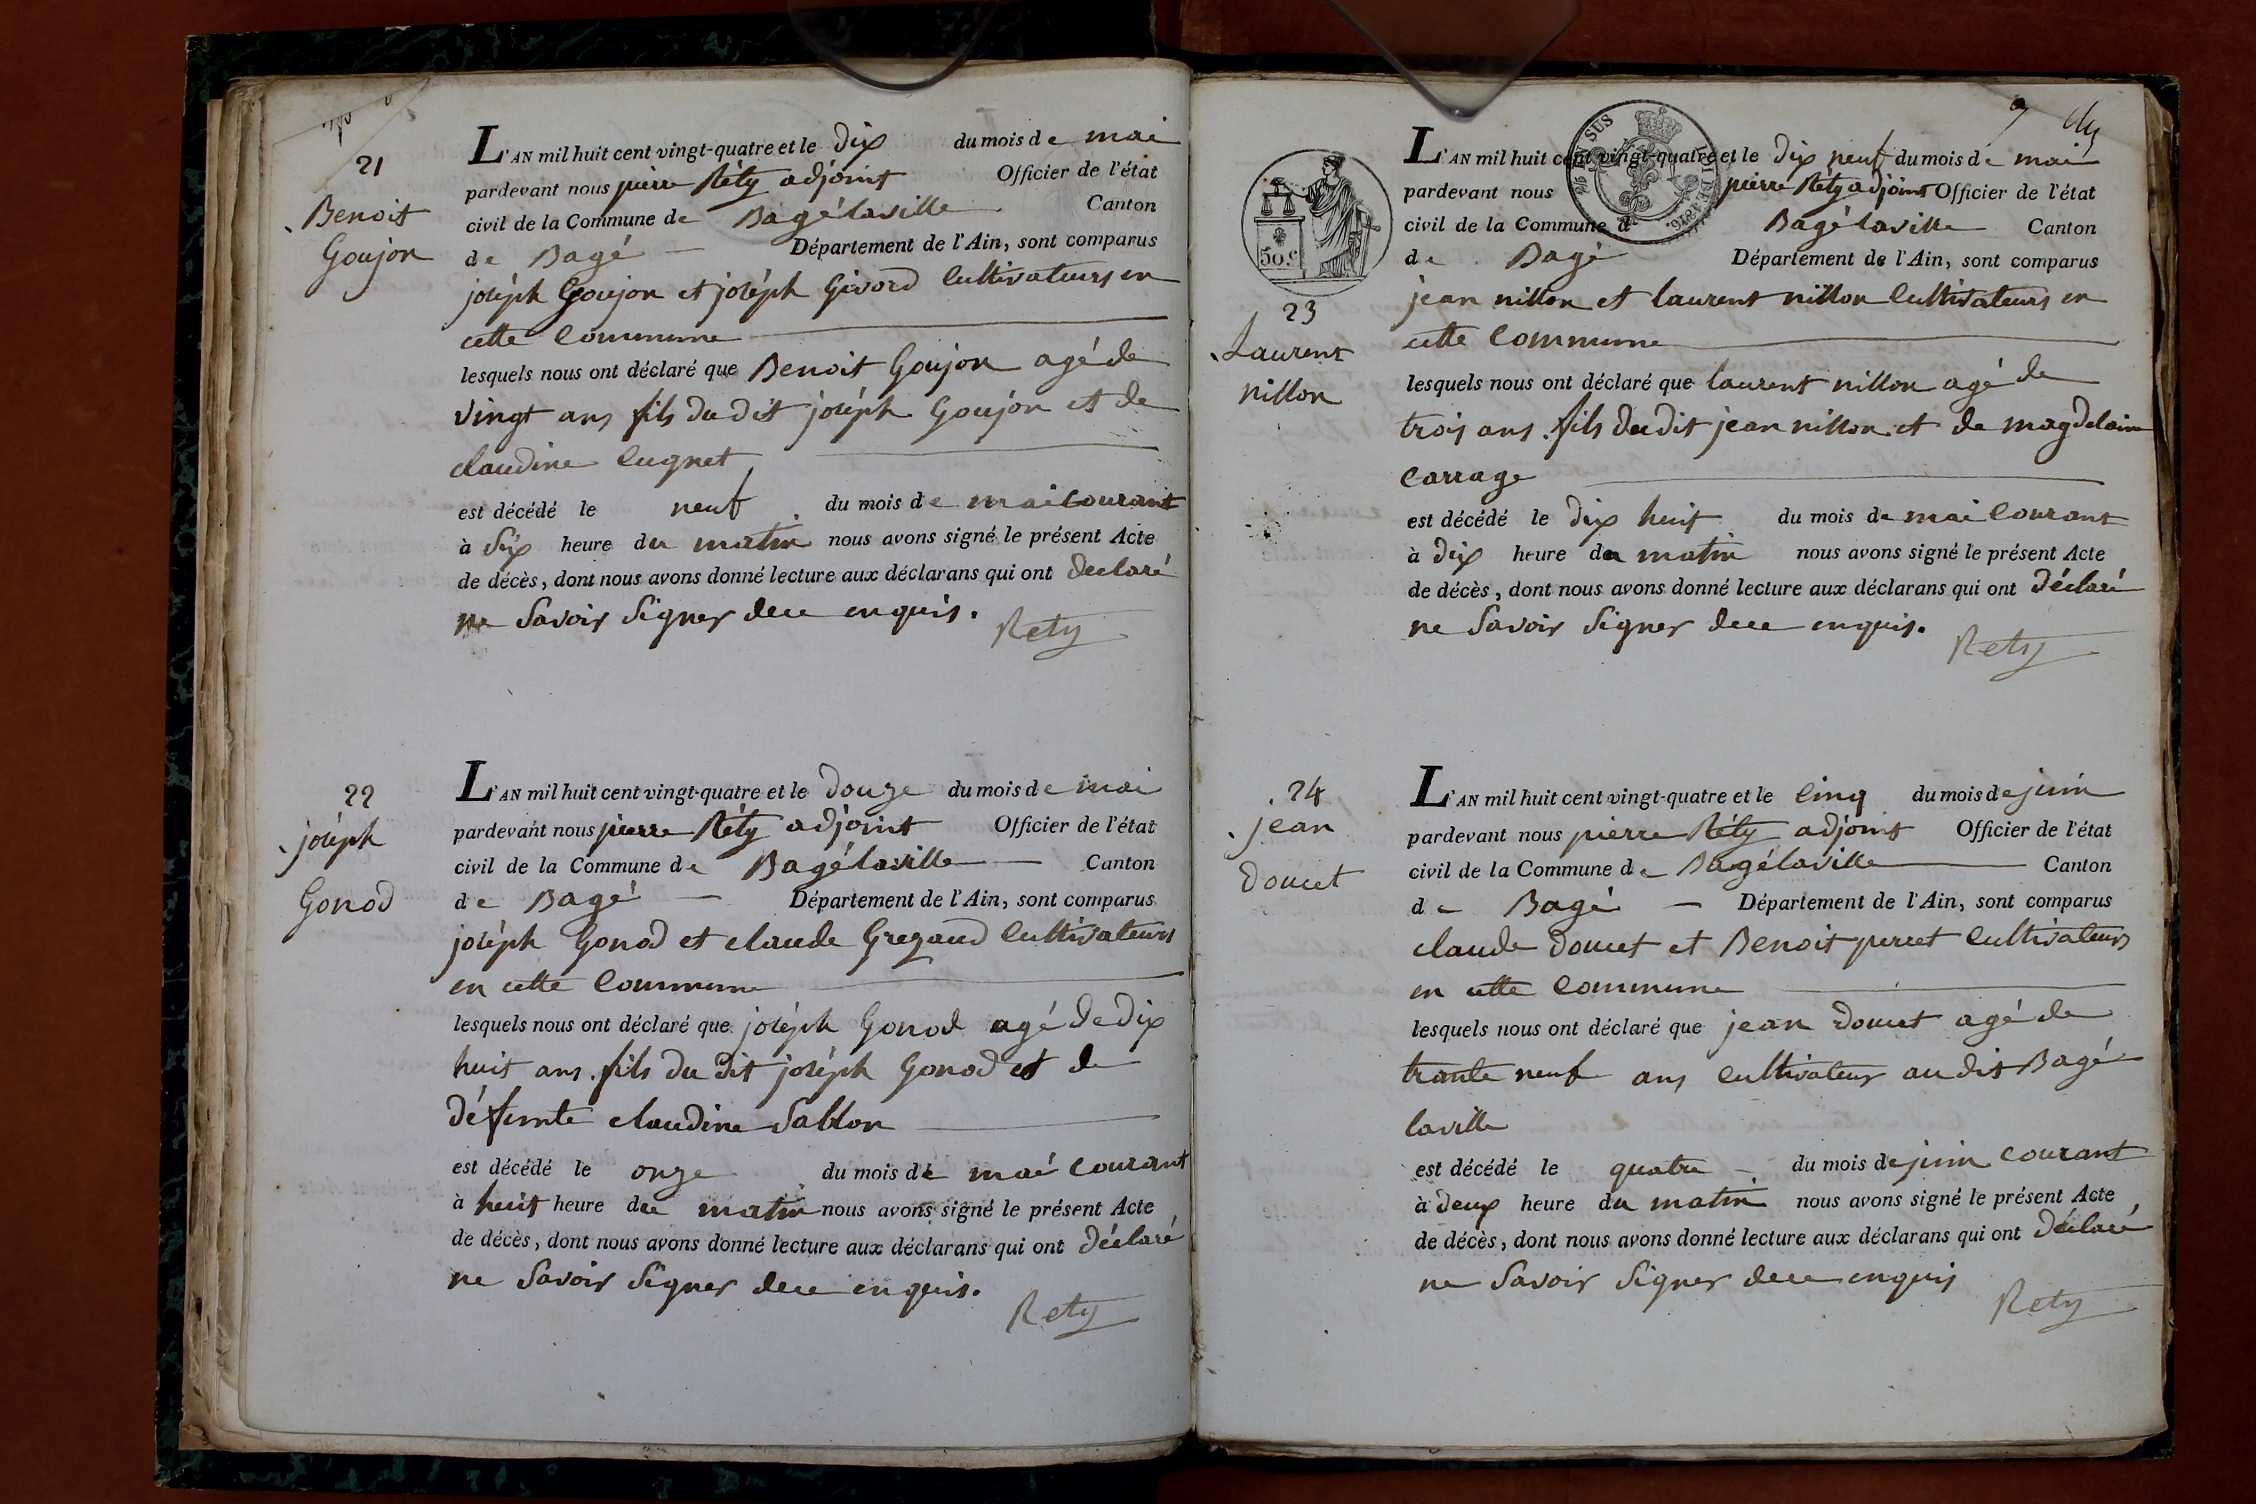 21
Benoit
Goujon
L'AN mil huit cent vingt-quatre et le dix du mois de mai
pardevant nous pierre Réty adjoint Officier de l'état
civil de la Commune de Bagélaville Canton
de Bagé Département de l'Ain, sont comparus
joséph Goujon et joséph Givord Cultivateurs en
cette Commune
lesquels nous ont déclaré que Benoit Goujon agé de
vingt ans fils du dit joséph Goujon et de
claudine Cugnet
est décédé le neuf du mois de mai Courant
à Six heure du matin nous avons signé le présent Acte
de décès, dont nous avons donné lecture aux déclarans qui ont declaré
ne Savoir Signer de ce enquis.
Rety
22
joséph
Gonod
L'AN mil huit cent vingt-quatre et le douze du mois de mai
pardevant nous pierre Réty adjoint Officier de l'état
civil de la Commune de Bagélaville Canton
de Bagé Département de l'Ain, sont comparus
joséph Gonod et claude Grezaud Cultivateurs
en cette Commune
lesquels nous ont déclaré que joséph Gonod agé de dix
huit ans fils du dit joséph Gonod et de
défunte claudine Sablon
est décédé le onze du mois de mai Courant
à huit heure du matin nous avons signé le présent Acte
de décès, dont nous avons donné lecture aux déclarans qui ont déclaré
ne Savoir Signer de ce enquis.
Rety
7
50.c
23
Laurent
nillon
L'AN mil huit cent vingt-quatre et le dix neuf du mois de mai
pardevant nous pierre Réty adjoint Officier de l'état
civil de la Commune de Bagélaville Canton
de Bagé Département de l'Ain, sont comparus
jean nillon et laurent nillon Cultivateurs en
cette Commune
lesquels nous ont déclaré que laurent nillon agé de
trois ans fils du dit jean nillon et de magdelaine
Carrage
est décédé le dix huit du mois de mai Courant
à dix heure du matin nous avons signé le présent Acte
de décès, dont nous avons donné lecture aux déclarans qui ont déclaré
ne Savoir Signer de ce enquis.
Rety
24
jean
doucet
L'AN mil huit cent vingt-quatre et le Cinq du mois de juin
pardevant nous pierre Réty adjoint Officier de l'état
civil de la Commune de Bagélaville Canton
de Bagé Département de l'Ain, sont comparus
claude doucet et Benoit perret Cultivateurs
en cette Commune
lesquels nous ont déclaré que jean doucet agé de
trante neuf ans Cultivateur au dit Bagé
laville
est décédé le quatre du mois de juin Courant
à deux heure du matin nous avons signé le présent Acte
de décès, dont nous avons donné lecture aux déclarans qui ont déclaré
ne Savoir Signer de ce enquis
Rety